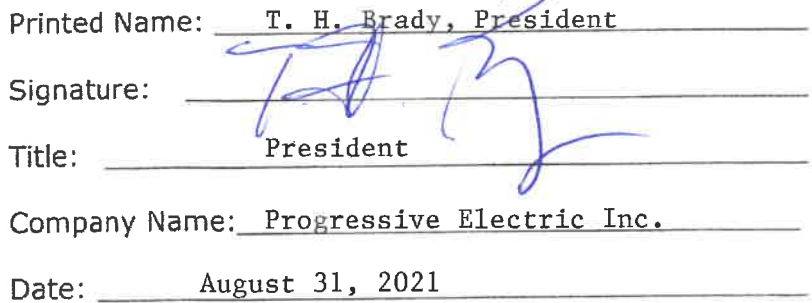 Printed Name: T. H. Brady, President
Signature:
Title: President
Company Name: Progressive Electric Inc.
Date: August 31, 2021